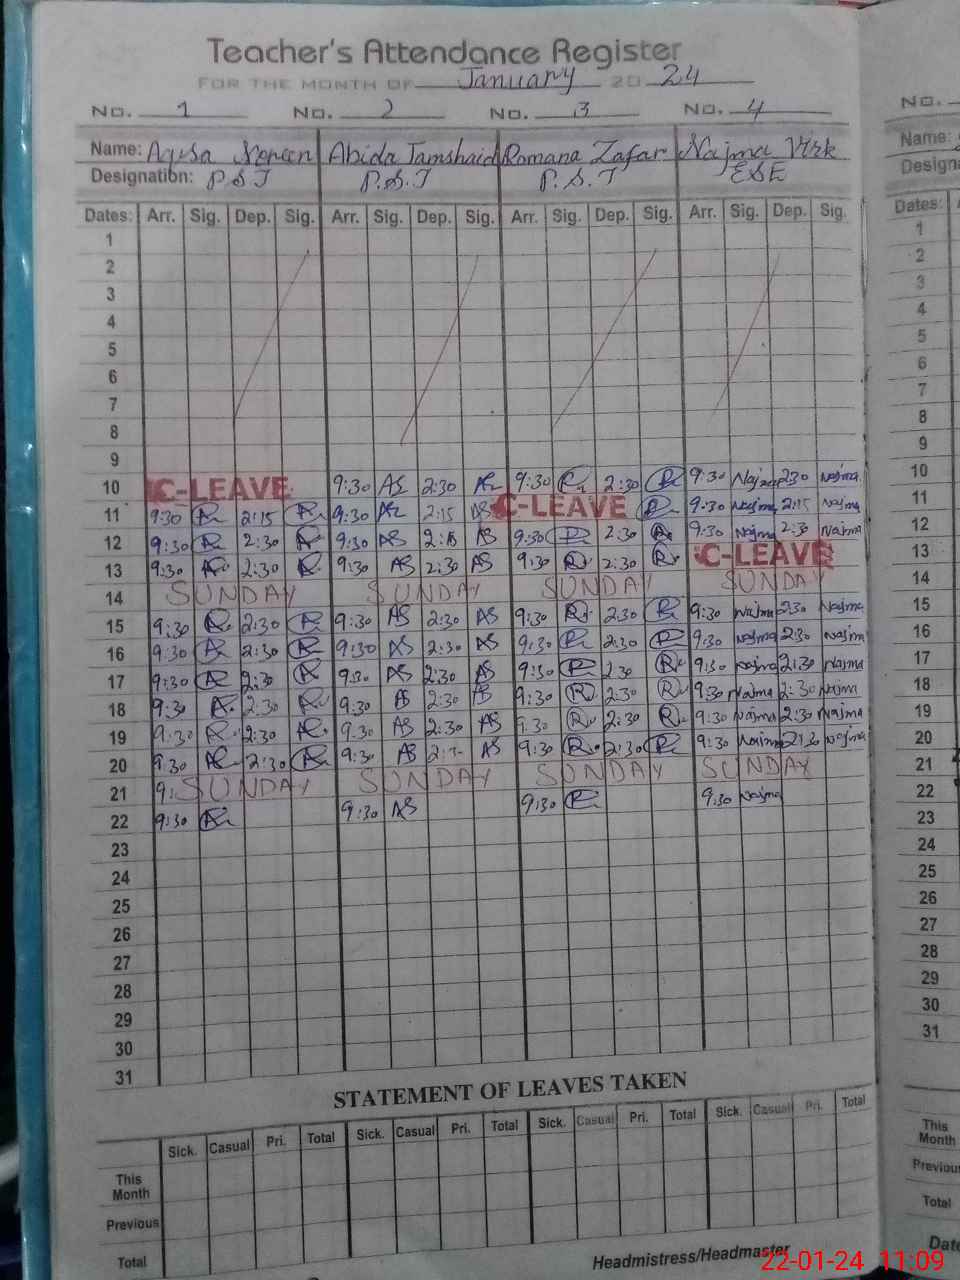 Teacher's Attendance Register
FOR THE MONTH OF January 20 24
No. 1 No. 2 No. 3 No. 4
No.
Name: Aqsa Noreen Abida Jamshaid Romana Zafar Najma Virk
Name:
Designation: P.S.T P.S.T P.S.T ESE
Dates: Arr. Sig. Dep. Sig. Arr. Sig. Dep. Sig. Arr. Sig. Dep. Sig. Arr. Sig. Dep. Sig.
Dates:
1 1
2 2
3 3
4 4
5 5
6 6
7 7
8 8
9 9
10 C-LEAVE 9:30 AS 2:30 9:30 2:30 9:30 Najma 2:30 Najma 10
11 9:30 2:15 9:30 2:15 AS C-LEAVE 9:30 Najma 2:15 Najma 11
12 9:30 2:30 9:30 AS 2:15 AS 9:30 2:30 9:30 Najma 2:30 Najma 12
13 9:30 2:30 9:30 AS 2:30 AS 9:30 2:30 C-LEAVE 13
14 SUNDAY SUNDAY SUNDAY SUNDAY 14
15 9:30 2:30 9:30 AS 2:30 AS 9:30 2:30 9:30 Najma 2:30 Najma 15
16 9:30 2:30 9:30 AS 2:30 AS 9:30 2:30 9:30 Najma 2:30 Najma 16
17 9:30 2:30 9:30 AS 2:30 AS 9:30 2:30 9:30 Najma 2:30 Najma 17
18 9:30 2:30 9:30 AS 2:30 AS 9:30 2:30 9:30 Najma 2:30 Najma 18
19 9:30 2:30 9:30 AS 2:30 AS 9:30 2:30 9:30 Najma 2:30 Najma 19
20 9:30 2:30 9:30 AS AS 9:30 2:30 9:30 Najma 2:30 Najma 20
21 9: SUNDAY SUNDAY SUNDAY SUNDAY 21
22 9:30 9:30 AS 9:30 9:30 Najma 22
23 23
24 24
25 25
26 26
27 27
28 28
29 29
30 30
31 31
STATEMENT OF LEAVES TAKEN
Sick. Casual Pri. Total Sick. Casual Pri. Total Sick. Casual Pri. Total Sick. Casual Pri. Total
This Month
This Month
Previous
Previous
Total
Total
Headmistress/Headmaster
Date
22-01-24 11:09